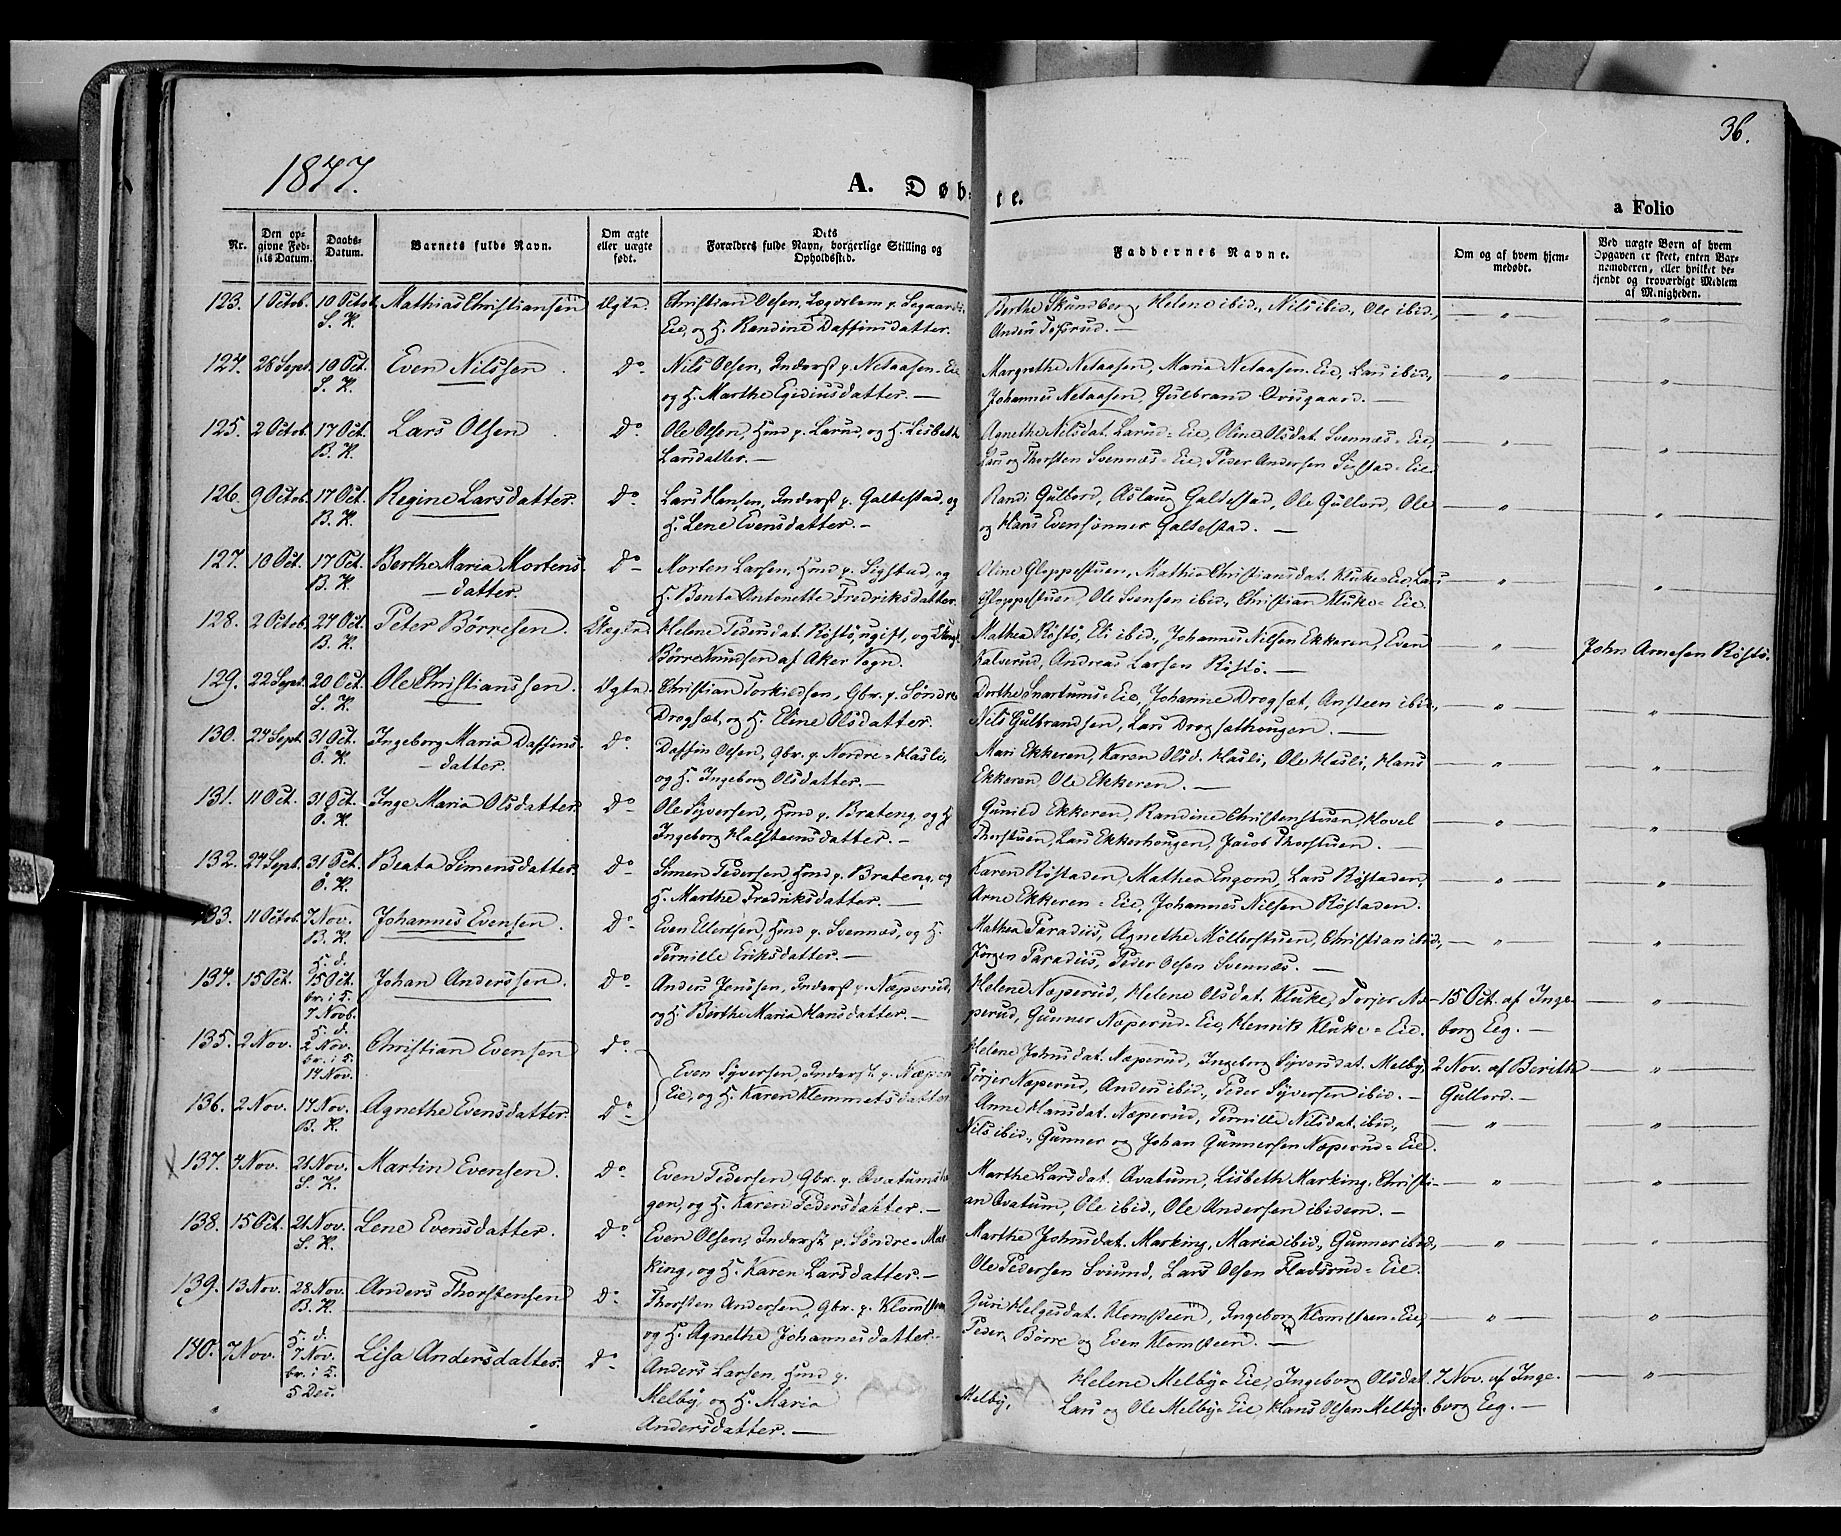 36.
1847.
A. Døbte.
a Folio
Nr.
Den op-
givne Fød-
sels Datum.
Daabs-
Datum.
Barnets fulde Navn.
Om ægte
eller uægte
født.
Dets
Forældres fulde Navn, borgerlige Stilling og
Opholdssted.
Faddernes Navne.
Om og af hvem hjem-
medøbt.
Ved uægte Børn af hvem
Opgaven er skeet, enten Bar-
nemoderen, eller hvilket be-
kjendt og troværdigt Medlem
af Menigheden.
123. 1 Octob. 10 Octob. Mathias Christiansen Ægte. Christian Olsen,
S. K. Eie, og H. Randine Daffinsdatter.
Berthe Skundberg, Helene ibid., Nils ibid., Ole ibid.,
Anders
124. 26 Sept. 10 Oct. Even Nilssen. Do Nils Olsen, Inderst p. Netaasen-Eie
S. K. og H. Marthe Egidiusdatter. —
Margrethe Netaasen, Maria Netaasen-Eie, Lars ibid.,
Johannes Netaasen, Gulbrand Ovsgaard. —
125. 2 Octob. 17 Oct. Lars Olsen. Do Ole Olsen, Hmd p. Larud, og H. Lisbeth
B. K. Larsdatter. —
Agnethe Nilsdat. Larud-Eie, Oline Olsdat. Svennæs-Eie,
Lars og Thorsten Svennæs-Eie, Peder Andersen Sigstad-Eie.
126. 9 Octob. 17 Oct. Regine Larsdatter. Do Lars Hansen, Inderst p. Galtestad, og
B. K. H. Lene Evensdatter. —
Randi Gullord, Aslaug Galtestad, Ole Gullord, Ole
og Hans Evensønner Galtestad. —
127. 10 Oct. 17 Oct. Berthe Maria Mortens- Do Morten Larsen, Hmd p. Sigstad, og
B. K. datter. H. Benta Antonette Fredriksdatter.
Oline Gloppestuen, Mathia Christiansdat. Kluke-Eie, Lars
Gloppestuen, Ole Svensen ibid., Christian Kluke-Eie.
128. 2 Octob. 24 Oct. Peter Børresen. Uægte. Helene Pedersdat. Røstø, ugift, og
B. K. Børre Knudsen af Aker Sogn.
Mathea Røstø, Eli ibid., Johannes Nilsen Ekkeren, Even
Kalverud, Andreas Larsen Røstø. —
John Arnesen Røstø.
129. 22 Sept. 20 Oct. Ole Christianssen. Ægte. Christian Torkildsen, Gbr. p. Søndre
S. K. Drogset, og H. Eline Olsdatter.
Dorthe Snartums-Eie, Johanne Drogset, Ansteen ibid.,
Nils Gulbrandsen, Lars Drogsethougen. —
130. 24 Sept. 31 Oct. Ingeborg Maria Daffins- Do Daffin Olsen, Gbr. p. Nordre-Hasli,
Ö. K. datter. og H. Ingeborg Olsdatter. —
Mari Ekkeren, Karen Olsd. Hasli, Ole Hasli, Hans
Ekkeren, Ole Ekkeren. —
131. 11 Oct. 31 Oct. Inge Maria Olsdatter Do Ole Syversen, Hmd p. Brateng, og H.
Ö. K. Ingeborg Halsteensdatter. —
Gunild Ekkeren, Randine Christenstuen, Hovel
Thorstuen, Lars Ekkerhougen, Jacob Thorstuen. —
132. 24 Sept. 31 Oct. Beata Simensdatter. Do Simen Pedersen, Hmd p. Brateng, og
Ö. K. H. Marthe Fredriksdatter. —
Karen Røstaden, Mathea Engom, Lars Røstaden,
Arne Ekkeren-Eie, Johannes Nilsen Røstaden.
133. 11 Octob. 7 Nov. Johannes Evensen. Do Even Ellertsen, Hmd p. Svennæs, og H.
B. K. Pernille Eriksdatter. —
Mathea Paradiis, Agnethe Møllerstuen, Christian ibid.,
Jørgen Paradiis, Peder Olsen Svennæs. —
134. 15 Oct. H. d. 15 Oct. Johan Anderssen. Do Anders Jenssen, Inderst p. Næperud,
br. i K. 7 Novb. og H. Berthe Maria Hansdatter. —
Helene Næperud, Helene Olsdat. Kluke, Torjer Næ-
perud, Gunner Næperud-Eie, Henrik Kluke-Eie.
15 Oct. af Inge-
borg Eeg. —
135. 2 Nov. H. d. 2 Nov. Christian Evensen Do
br. i K. 14 Nov.
Even Syversen, Inderst p. Næperud
Eie, og H. Karen Klemmetsdatter
Helene Johnsdat. Næperud, Ingeborg Syversdat. Melby,
Torjer Næperud, Anders ibid., Peder Syversen ibid. —
2 Nov. af Berithe
Gullord. —
136. 2 Nov. 14 Nov. Agnethe Evensdatter. Do
B. K.
Anne Hansdat. Næperud, Pernille Nilsdat. ibid.,
Nils ibid., Gunner og Johan Gunnersen Næperud-Eie.
137. 4 Nov. 21 Nov. Martin Evensen. Do Even Pedersen, Gbr. p. Ovatumsha-
S. K. gen, og H. Karen Pedersdatter. —
Marthe Larsdat. Ovatum, Lisbeth Marking, Christi-
an Ovatum, Ole ibid., Ole Andersen ibidem. —
138. 15 Oct. 21 Nov. Lene Evensdatter. Do Even Olsen, Inderst p. Søndre-Mar-
S. K. king, og H. Karen Larsdatter. —
Marthe Johnsdat. Marking, Maria ibid., Gunner ibid.,
Ole Pedersen Sviund, Lars Olsen Fladsrud-Eie.
139. 13 Nov. 28 Nov. Anders Thorstensen Do Thorsten Andersen, Gbr. p. Klomsteen
B. K. og H. Agnethe Johannesdatter.
Guri Helgesdat. Klomsteen, Ingeborg Klomsteen-Eie,
Peder, Børre og Even Klomsteen. —
140. 7 Nov. H. d. 7 Nov. Lisa Andersdatter. Do Anders Larsen, Hmd p.
br. i K. 5 Dec. Melby, og H. Maria
Andersdatter. —
Helene Melby-Eie, Ingeborg Olsdat.
Melby, Lars og Ole Melby-Eie, Hans Olsen Melby.
7 Nov. af Inge-
borg Eeg. —